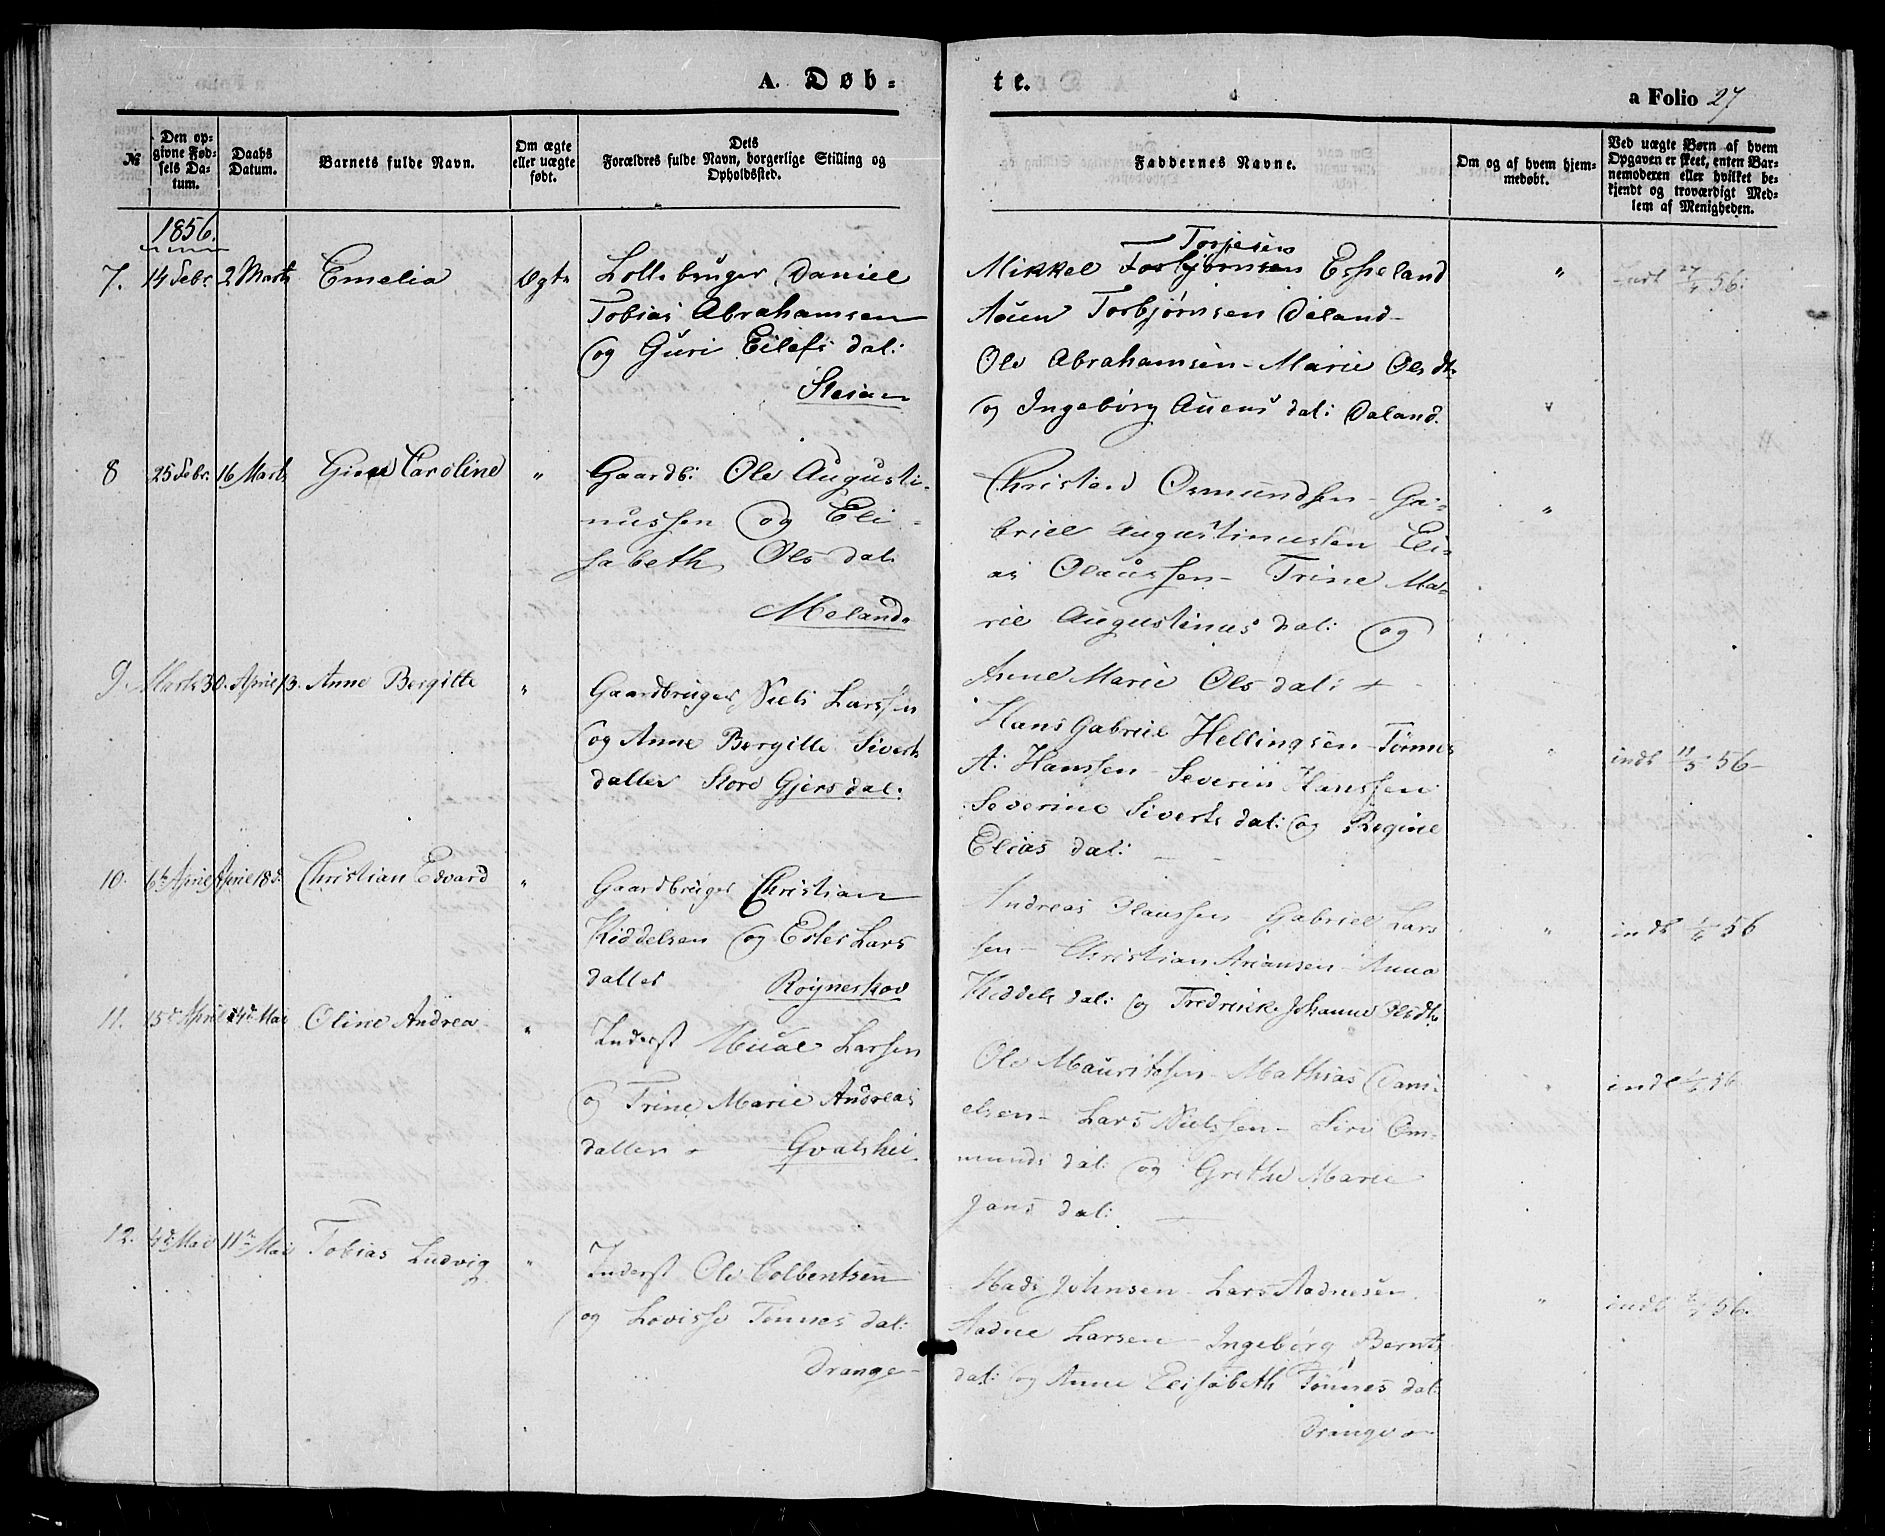 A. Døb-
te.
a Folio 27
№
Den op-
givne Fød-
sels Da-
tum.
Daabs
Datum.
Barnets fulde Navn.
Om ægte
eller uægte
født.
Dets
Forældres fulde Navn, borgerlige Stilling og
Opholdssted.
Faddernes Navne.
Om og af hvem hjem-
medøbt.
Ved uægte Børn af hvem
Opgaven er skeet, enten Bar-
nemoderen eller hvilket be-
kjendt og troværdigt Med-
lem af Menigheden.
1856.
7. 14 Febr. 2 Marts Emelia Ægte
Daniel
Tobias Abrahamsen
og Guri Eilefs dal:
Torjesen
Mikkel Torbjørnsen Espeland
Auen Torbjørnsen Daland-
Ole Abrahamsen - Marie Ols dt.
og Ingeborg Auens dal: Daland.
" indt 27/4 56:
8 25 Febr. 16 Marts Caroline "
Gaardb: Ole Augusti-
nussen og Eli-
sabeth Ols dal:
Meland.
Christen Osmundsen - Ga-
briel Augustinussen Eli-
as Olaussen - Trine Ma-
rie Augustinus dal: og
Anne Marie Ols dal:
"
9. Marts 30. April 13. Anne Bergitte "
Gaardbruger Niels Larssen
og Anne Bergitte Siverts
datter Store Gjersdal:
Hans Gabriel Hellingsen - Tønnes
A: Hanssen - Severin Hanssen
Severine Siverts dal: og Regine
Elias dal:
" indt 56-
10. 6te April April 18d. Christian Edvard "
Gaardbruger Christian
Kiddelsen og Ester Lars
datter Røyneskov
Andreas Olaussen - Gabriel Lars
sen - Christian Ariansen - Anna
Kiddels dal: og Fredrikke Johanne Olsdt.
" indt 56
11. 15de April 4de Mai Oline Andrea "
Inderst Larsen
og Trine Marie Andreas
datter Gvalshei
Ole Mauritssen - Mathias Dani-
elsen - Lars Nielssen - Siri Om-
munds dal: og Grethe Marie
Jans dal:
" indt 56
12. 4de Mai 11te Mai Tobias Ludvig "
Inderst Ole Colbentsen
og Lovisse Tønnes dal:
Drange-
Mads Johnsen - Lars Aadnesen.
Aadne Larsen - Ingeborg Bernts
dal: og Anne Elisabeth Tønnes dal:
Drange
" indt 56.